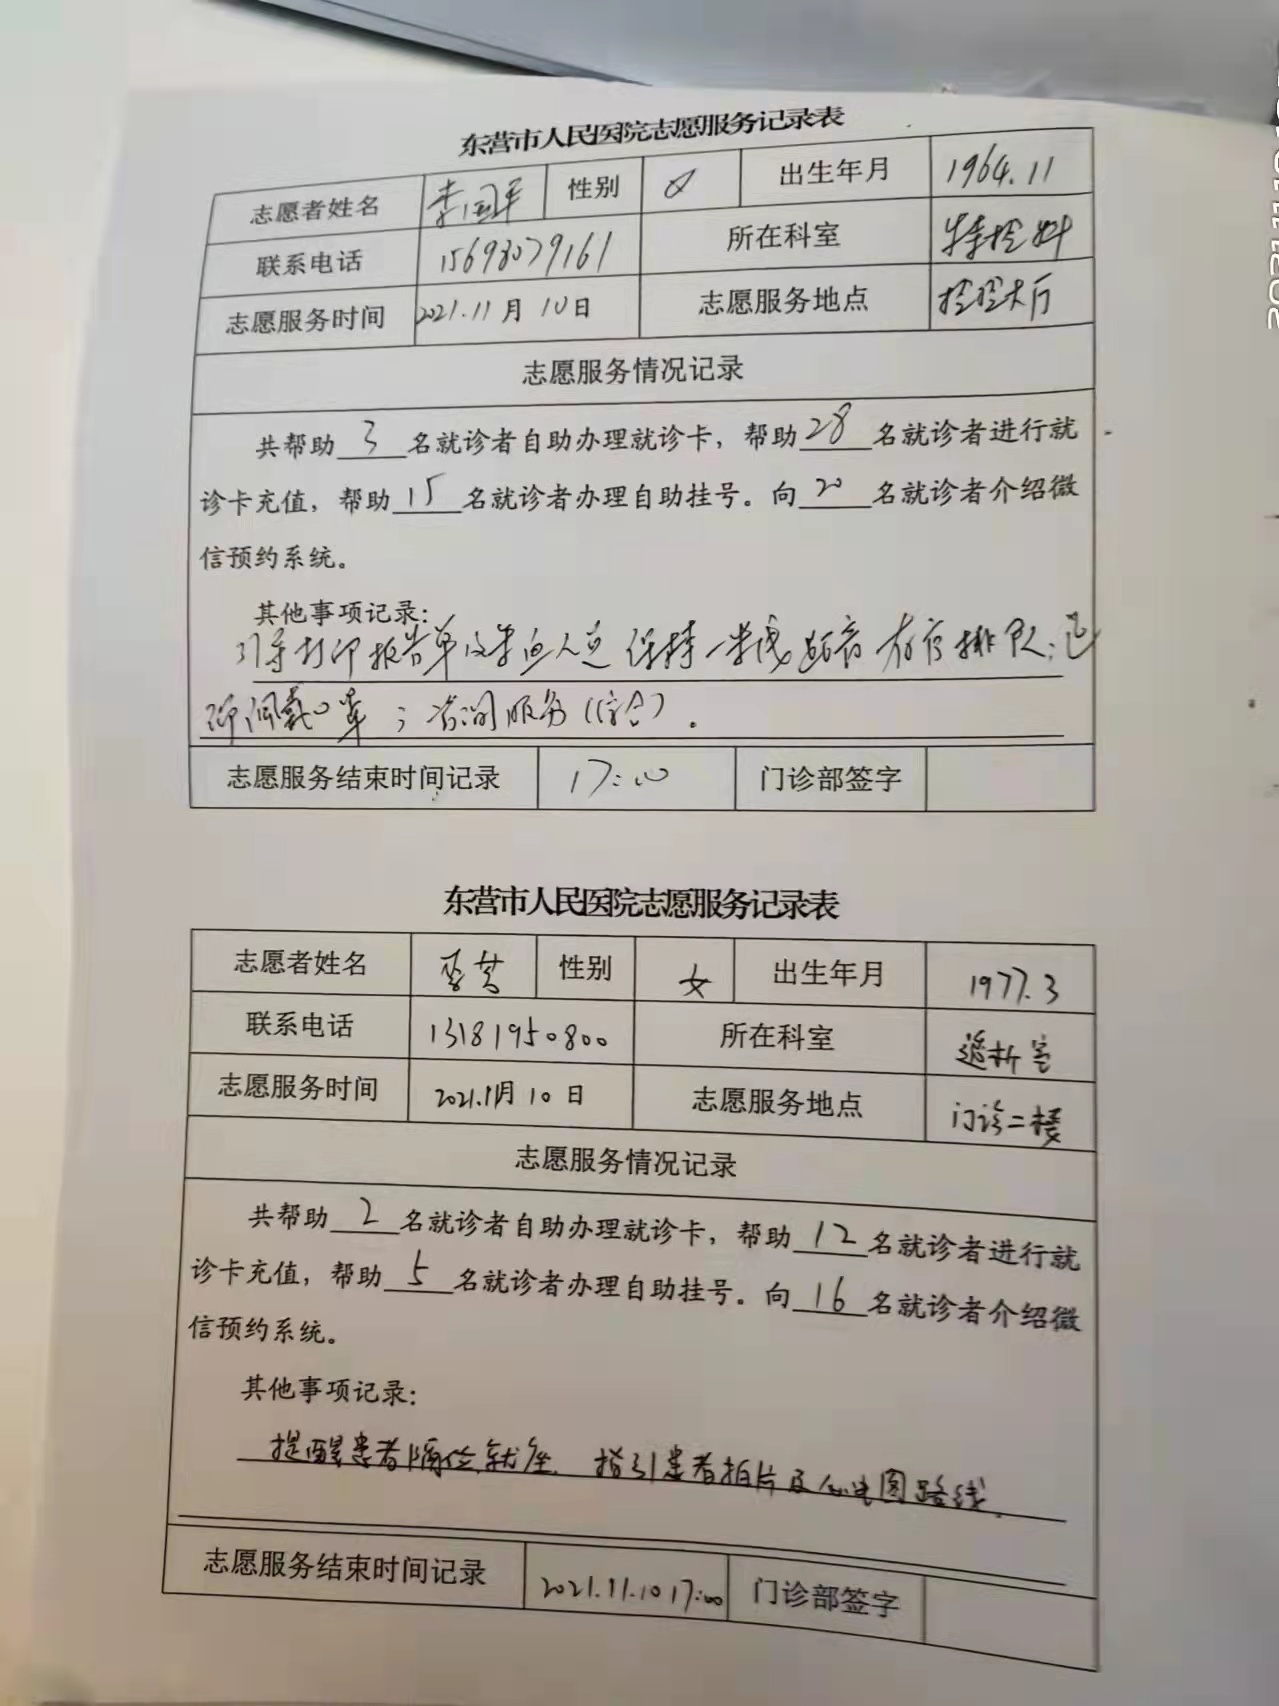 东营市人民医院志愿服务记录表
志愿者姓名 李国平 性别 女 出生年月 1964.11
联系电话 15698079161 所在科室 特检科
志愿服务时间 2021.11月10日 志愿服务地点 检验大厅
志愿服务情况记录
共帮助3名就诊者自助办理就诊卡，帮助28名就诊者进行就
诊卡充值，帮助15名就诊者办理自助挂号。向20名就诊者介绍微
信预约系统。
其他事项记录：
引导打印报告单及采血人员保持一米线距离 有序排队；
佩戴口罩；咨询服务（综合）。
志愿服务结束时间记录 17:00 门诊部签字
东营市人民医院志愿服务记录表
志愿者姓名 性别 女 出生年月 1977.3
联系电话 13181950800 所在科室 透析室
志愿服务时间 2021.11月10日 志愿服务地点 门诊二楼
志愿服务情况记录
共帮助2名就诊者自助办理就诊卡，帮助12名就诊者进行就
诊卡充值，帮助5名就诊者办理自助挂号。向16名就诊者介绍微
信预约系统。
其他事项记录：
提醒患者隔位就座、指引患者拍片及心电图路线。
志愿服务结束时间记录 2021.11.10 17:00 门诊部签字